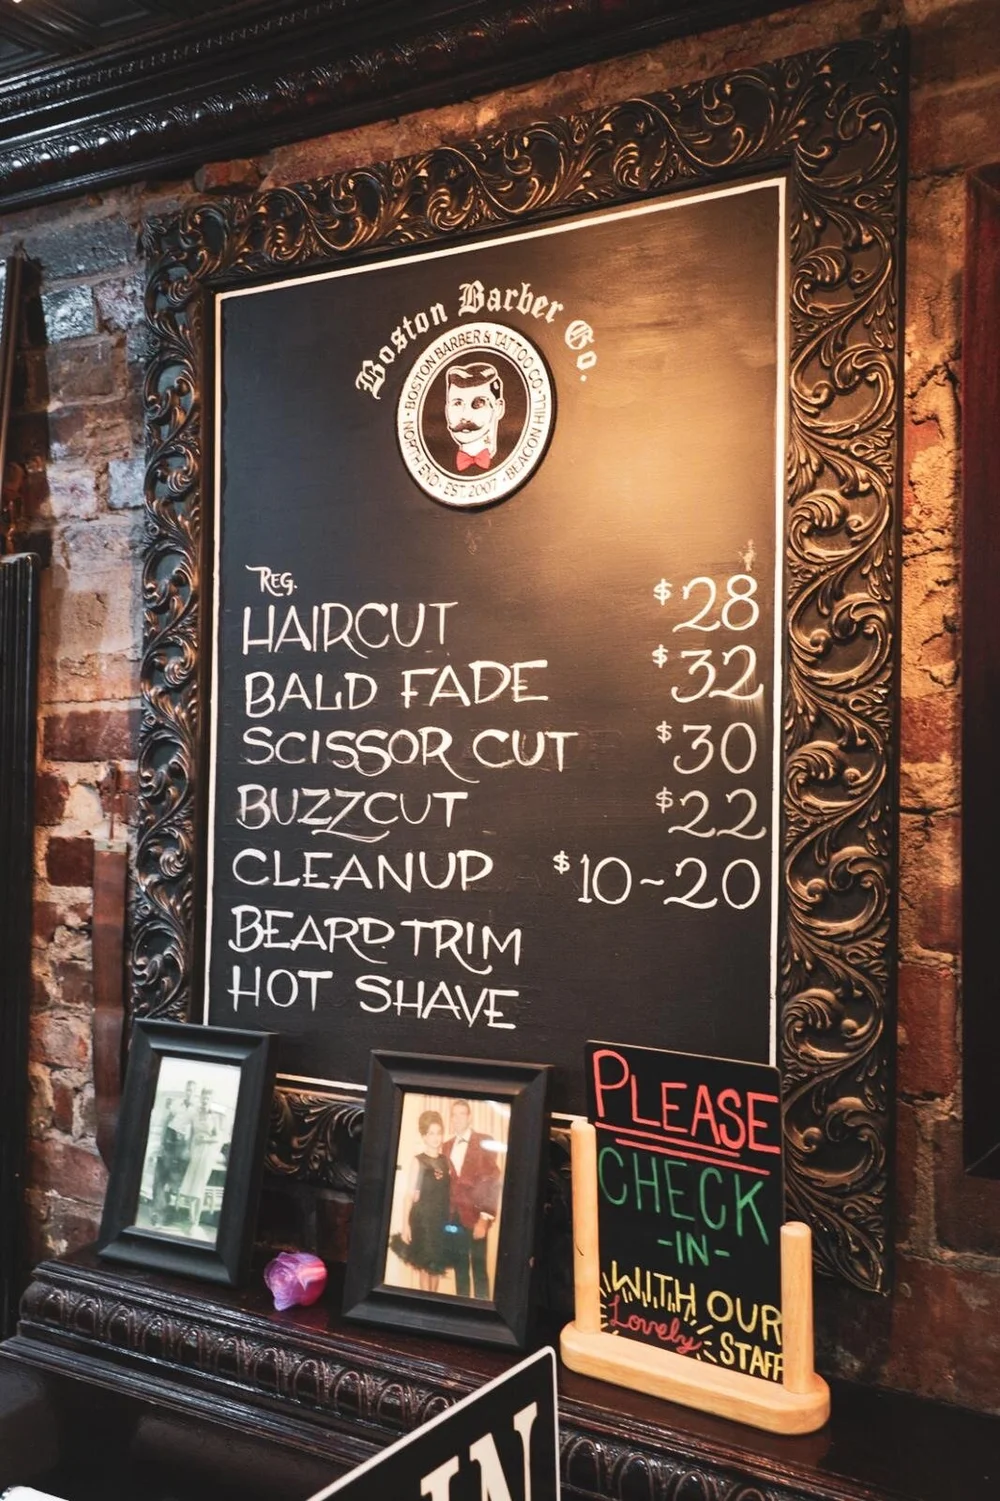 Boston Barber Co.
BOSTON BARBER & TATTOO CO.
NORTH END · EST. 2007 · BEACON HILL
REG.
HAIRCUT $28
BALD FADE $32
SCISSOR CUT $30
BUZZCUT $22
CLEANUP $10~20
BEARD TRIM
HOT SHAVE
PLEASE
CHECK
-IN-
WITH OUR
Lovely STAFF
IN